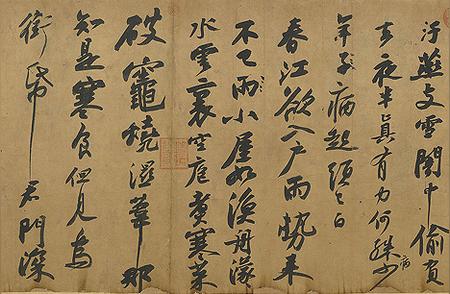 汙燕支雪闇中偷負
去夜半真有力何殊少病
年子病起頭已白
春江欲入戶雨勢來
不已雨小屋如漁舟濛〻
水雲裏空庖煮寒菜
破竈燒濕葦那
知是寒食但見烏
銜帋君門深